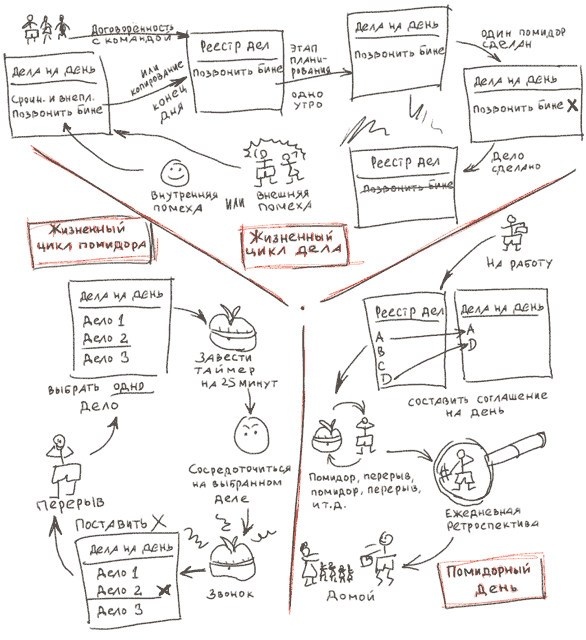 Договоренность
с командой
Дела на день
Срочн. и внепл.
Позвонить Бине
или
копирование
конец
дня
Реестр дел
Позвонить Бине
этап
плани-
рования
одно
утро
Дела на день
Позвонить Бине
один помидор
сделан
Дела на день
Позвонить Бине X
Дело
сделано
Реестр дел
Позвонить Бине
Внутренняя
помеха
или
Внешняя
помеха
Жизненный
цикл помидора
Жизненный
цикл дела
Дела на день
Дело 1
Дело 2
Дело 3
выбрать одно
Дело
Завести
таймер
на 25 минут
Сосредоточиться
на выбранном
деле
Звонок
Поставить X
Дела на день
Дело 1
Дело 2 X
Дело 3
Перерыв
На работу
Реестр дел
A
B
C
D
Дела на день
A
D
составить соглашение
на день
Помидор, перерыв,
помидор, перерыв,
и т.д.
Ежедневная
Ретроспектива
Домой
Помидорный
День